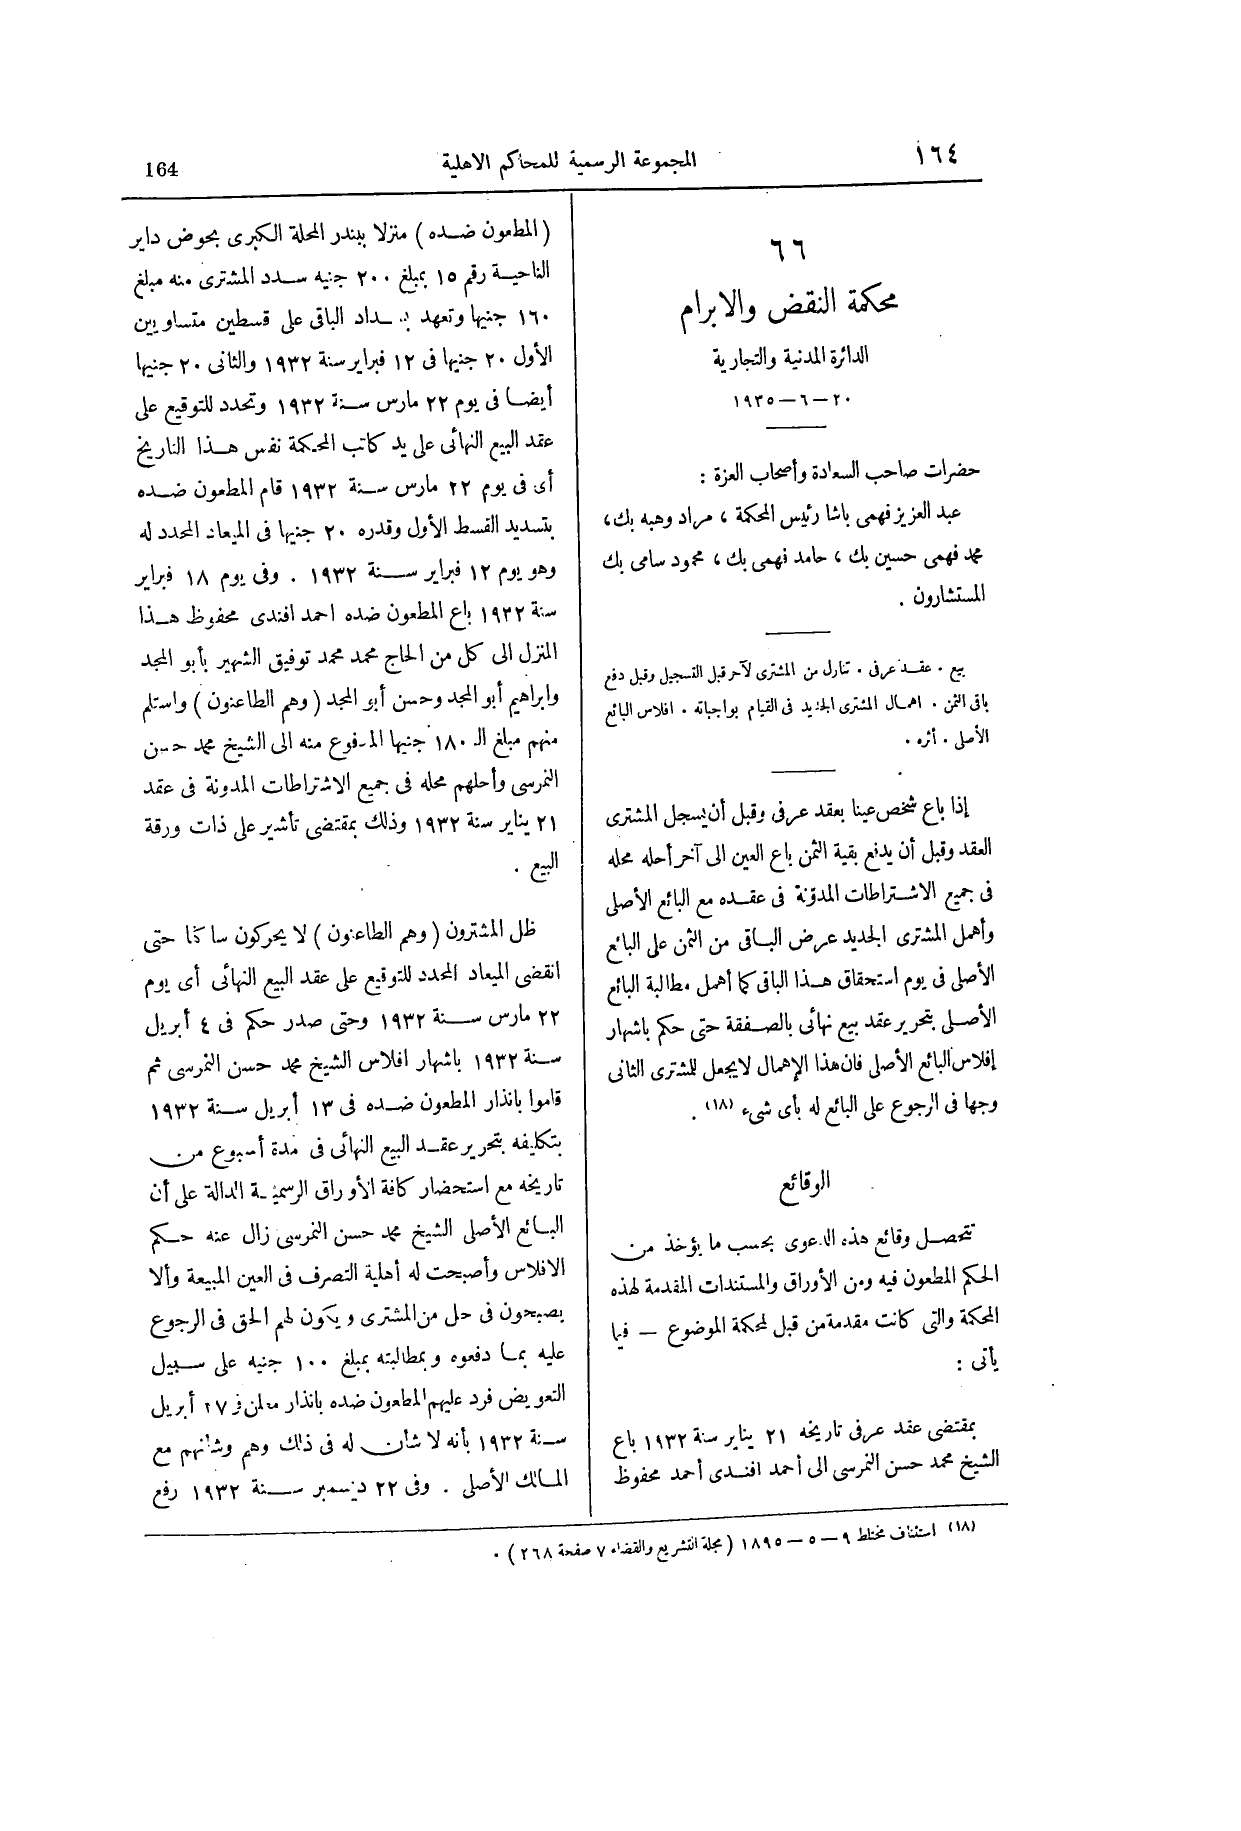 ١٦٤
المجموعة الرسمية للمحاكم الاهلية
164
٦٦
محكمة النقض والابرام
الدائرة المدنية والتجارية
٢٠ – ٦ – ١٩٣٥
حضرات صاحب السعادة وأصحاب العزة :
عبد العزيز فهمى باشا رئيس المحكمة ، مراد وهبه بك،
محمد فهمى حسين بك ، حامد فهمى بك ، محمود سامى بك
المستشارون .
بيع . عقد عرفى . تنازل من المشترى لآخر قبل التسجيل وقبل دفع
باقى الثمن . اهمال المشترى الجديد فى القيام بواجباته . افلاس البائع
الأصلى . أثره .
إذا باع شخص عينا بعقد عرفى وقبل أن يسجل المشترى
العقد وقبل أن يدفع بقية الثمن باع العين الى آخر أحله محله
فى جميع الاشتراطات المدوّنة فى عقده مع البائع الأصلى
وأهمل المشترى الجديد عرض الباقى من الثمن على البائع
الأصلى فى يوم استحقاق هذا الباقى كما أهمل مطالبة البائع
الأصلى بتحرير عقد بيع نهائى بالصفقة حتى حكم باشهار
إفلاس البائع الأصلى فان هذا الإهمال لا يجعل للمشترى الثانى
وجها فى الرجوع على البائع له بأى شىء (١٨) .
الوقائع
تتحصل وقائع هذه الدعوى بحسب ما يؤخذ من
الحكم المطعون فيه ومن الأوراق والمستندات المقدمة لهذه
المحكمة والتى كانت مقدمة من قبل لمحكمة الموضوع – فيما
يأتى :
بمقتضى عقد عرفى تاريخه ٢١ يناير سنة ١٩٣٢ باع
الشيخ محمد حسن النمرسى الى أحمد افندى أحمد محفوظ
(المطعون ضده) منزلا ببندر المحلة الكبرى بحوض داير
الناحية رقم ١٥ بمبلغ ٢٠٠ جنيه سدد المشترى منه مبلغ
١٦٠ جنيها وتعهد بسداد الباقى على قسطين متساويين
الأول ٢٠ جنيها فى ١٢ فبراير سنة ١٩٣٢ والثانى ٢٠ جنيها
أيضا فى يوم ٢٢ مارس سنة ١٩٣٢ وتحدد للتوقيع على
عقد البيع النهائى على يد كاتب المحكمة نفس هذا التاريخ
أى فى يوم ٢٢ مارس سنة ١٩٣٢ قام المطعون ضده
بتسديد القسط الأول وقدره ٢٠ جنيها فى الميعاد المحدد له
وهو يوم ١٢ فبراير سنة ١٩٣٢ . وفى يوم ١٨ فبراير
سنة ١٩٣٢ باع المطعون ضده احمد افندى محفوظ هذا
المنزل الى كل من الحاج محمد محمد توفيق الشهير بأبو المجد
وابراهيم أبو المجد وحسن أبو المجد (وهم الطاعنون) واستلم
منهم مبلغ الـ ١٨٠ جنيها المدفوع منه الى الشيخ محمد حسن
النمرسى وأحلهم محله فى جميع الاشتراطات المدونة فى عقد
٢١ يناير سنة ١٩٣٢ وذلك بمقتضى تأشير على ذات ورقة
البيع .
ظل المشترون (وهم الطاعنون) لا يحركون ساكنا حتى
انقضى الميعاد المحدد للتوقيع على عقد البيع النهائى أى يوم
٢٢ مارس سنة ١٩٣٢ وحتى صدر حكم فى ٤ أبريل
سنة ١٩٣٢ باشهار افلاس الشيخ محمد حسن النمرسى ثم
قاموا بانذار المطعون ضده فى ١٣ أبريل سنة ١٩٣٢
بتكليفه بتحرير عقد البيع النهائى فى مدة أسبوع من
تاريخه مع استحضار كافة الأوراق الرسمية الدالة على أن
البائع الأصلى الشيخ محمد حسن النمرسى زال عنه حكم
الافلاس وأصبحت له أهلية التصرف فى العين المبيعة وألا
يصبحون فى حل من المشترى ويكون لهم الحق فى الرجوع
عليه بما دفعوه وبمطالبته بمبلغ ١٠٠ جنيه على سبيل
التعويض فرد عليهم المطعون ضده بانذار معلن فى ٢٧ أبريل
سنة ١٩٣٢ بأنه لا شأن له فى ذلك وهم وشأنهم مع
المالك الأصلى . وفى ٢٢ ديسمبر سنة ١٩٣٢ رفع
(١٨) استئناف مختلط ٩ – ٥ – ١٨٩٥ (مجلة التشريع والقضاء ٧ صفحة ٢٦٨) .